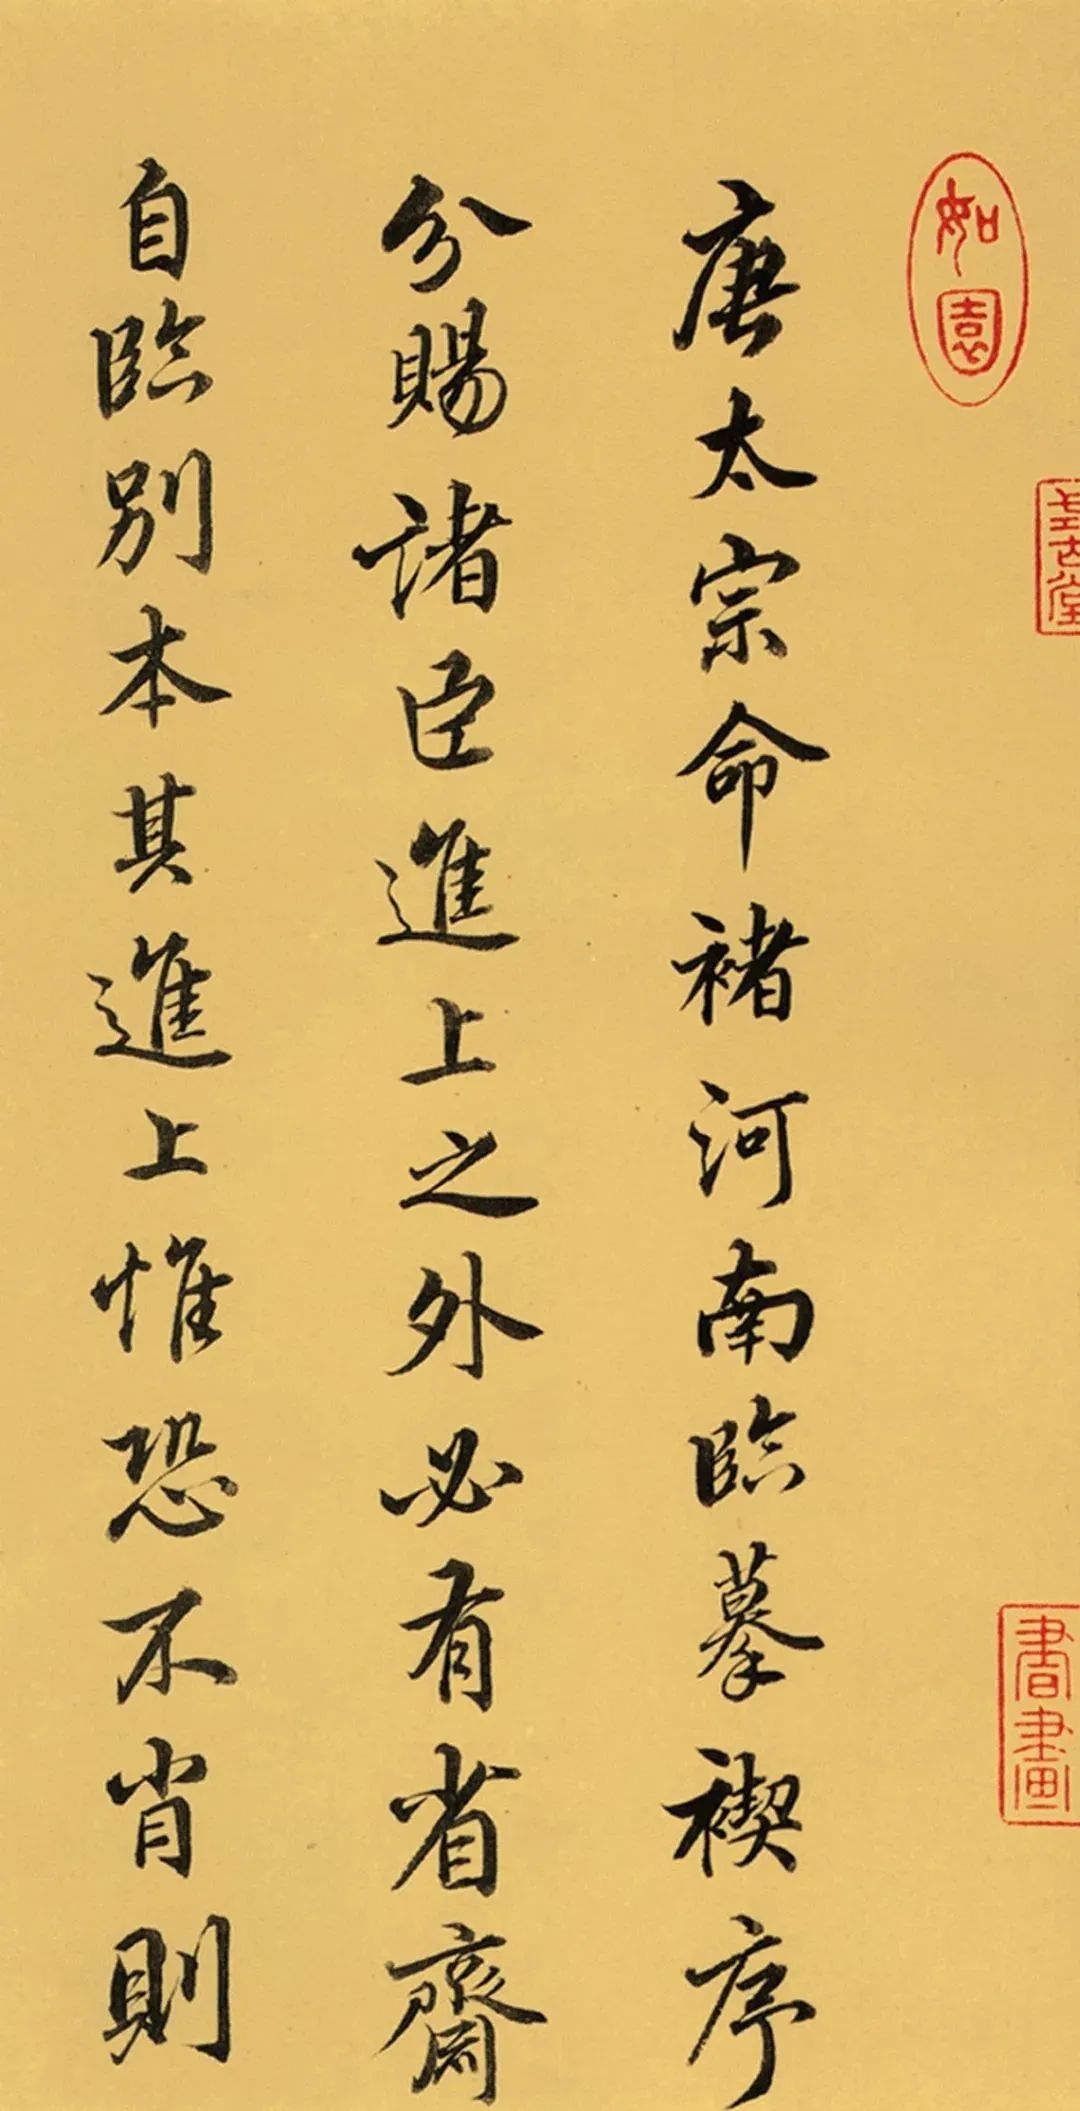 如園
書畫
唐太宗命褚河南臨摹禊序
分賜諸臣進上之外必有省齋
自臨別本其進上惟恐不肖則